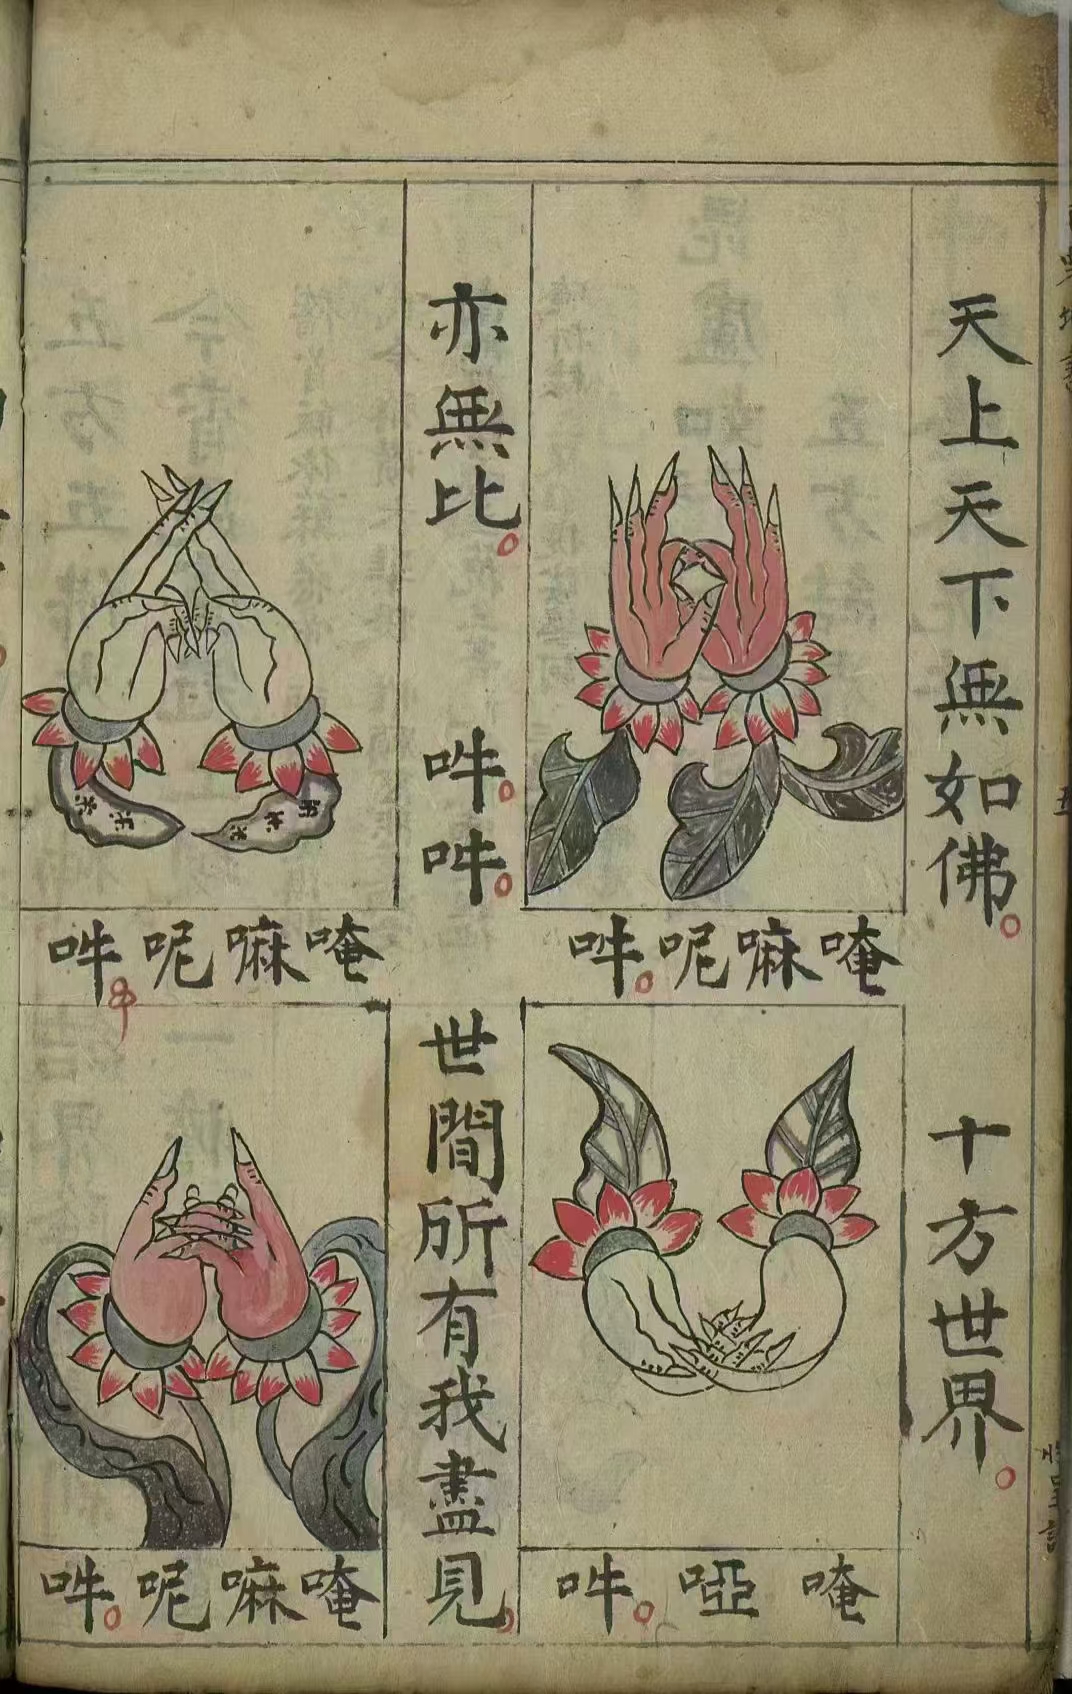 天上天下無如佛。
十方世界。
唵嘛呢吽。
唵啞吽。
亦無比。
吽。吽。
世間所有我盡見。
唵嘛呢吽。
唵嘛呢吽。